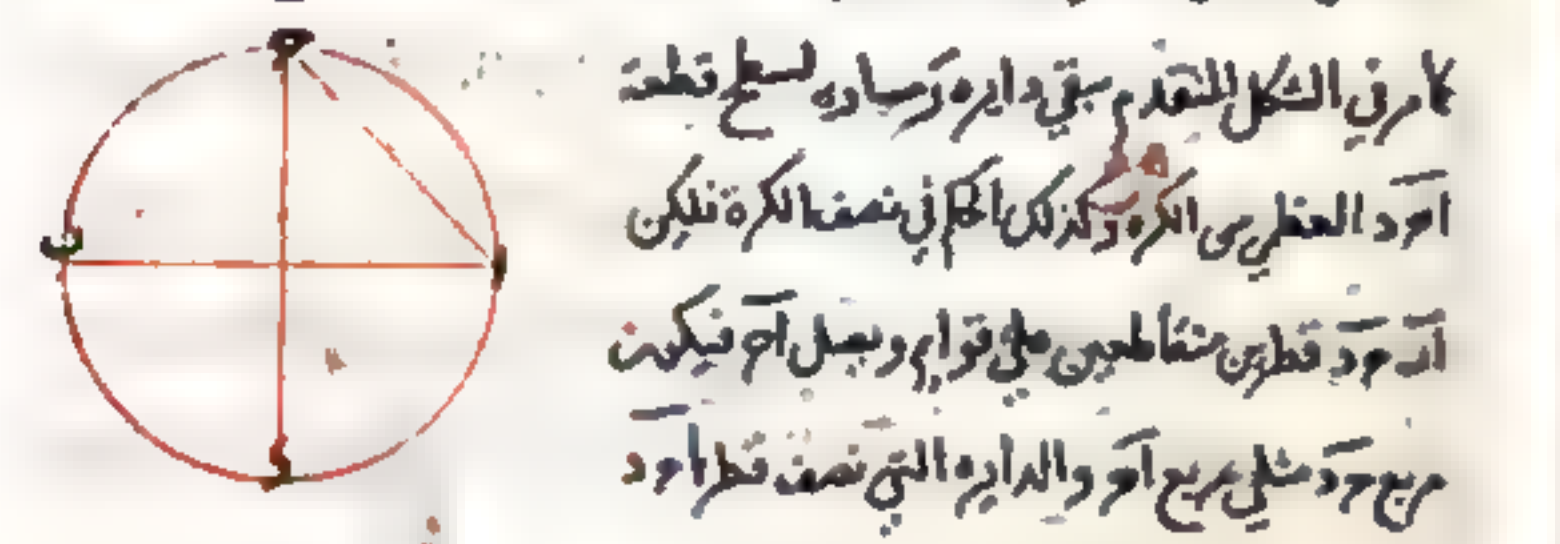 كما مر في الشكل المتقدم بقي دايره ومساويه لسطح قطعة
اود العظمي من الكره وكذلك الحكم في نصف الكرة فليكن
اب حد قطرين متقاطعين علي قوايم ونصل اح فيكون
مربع حد مثلي مربع اح والدايره التي نصف قطرها حد